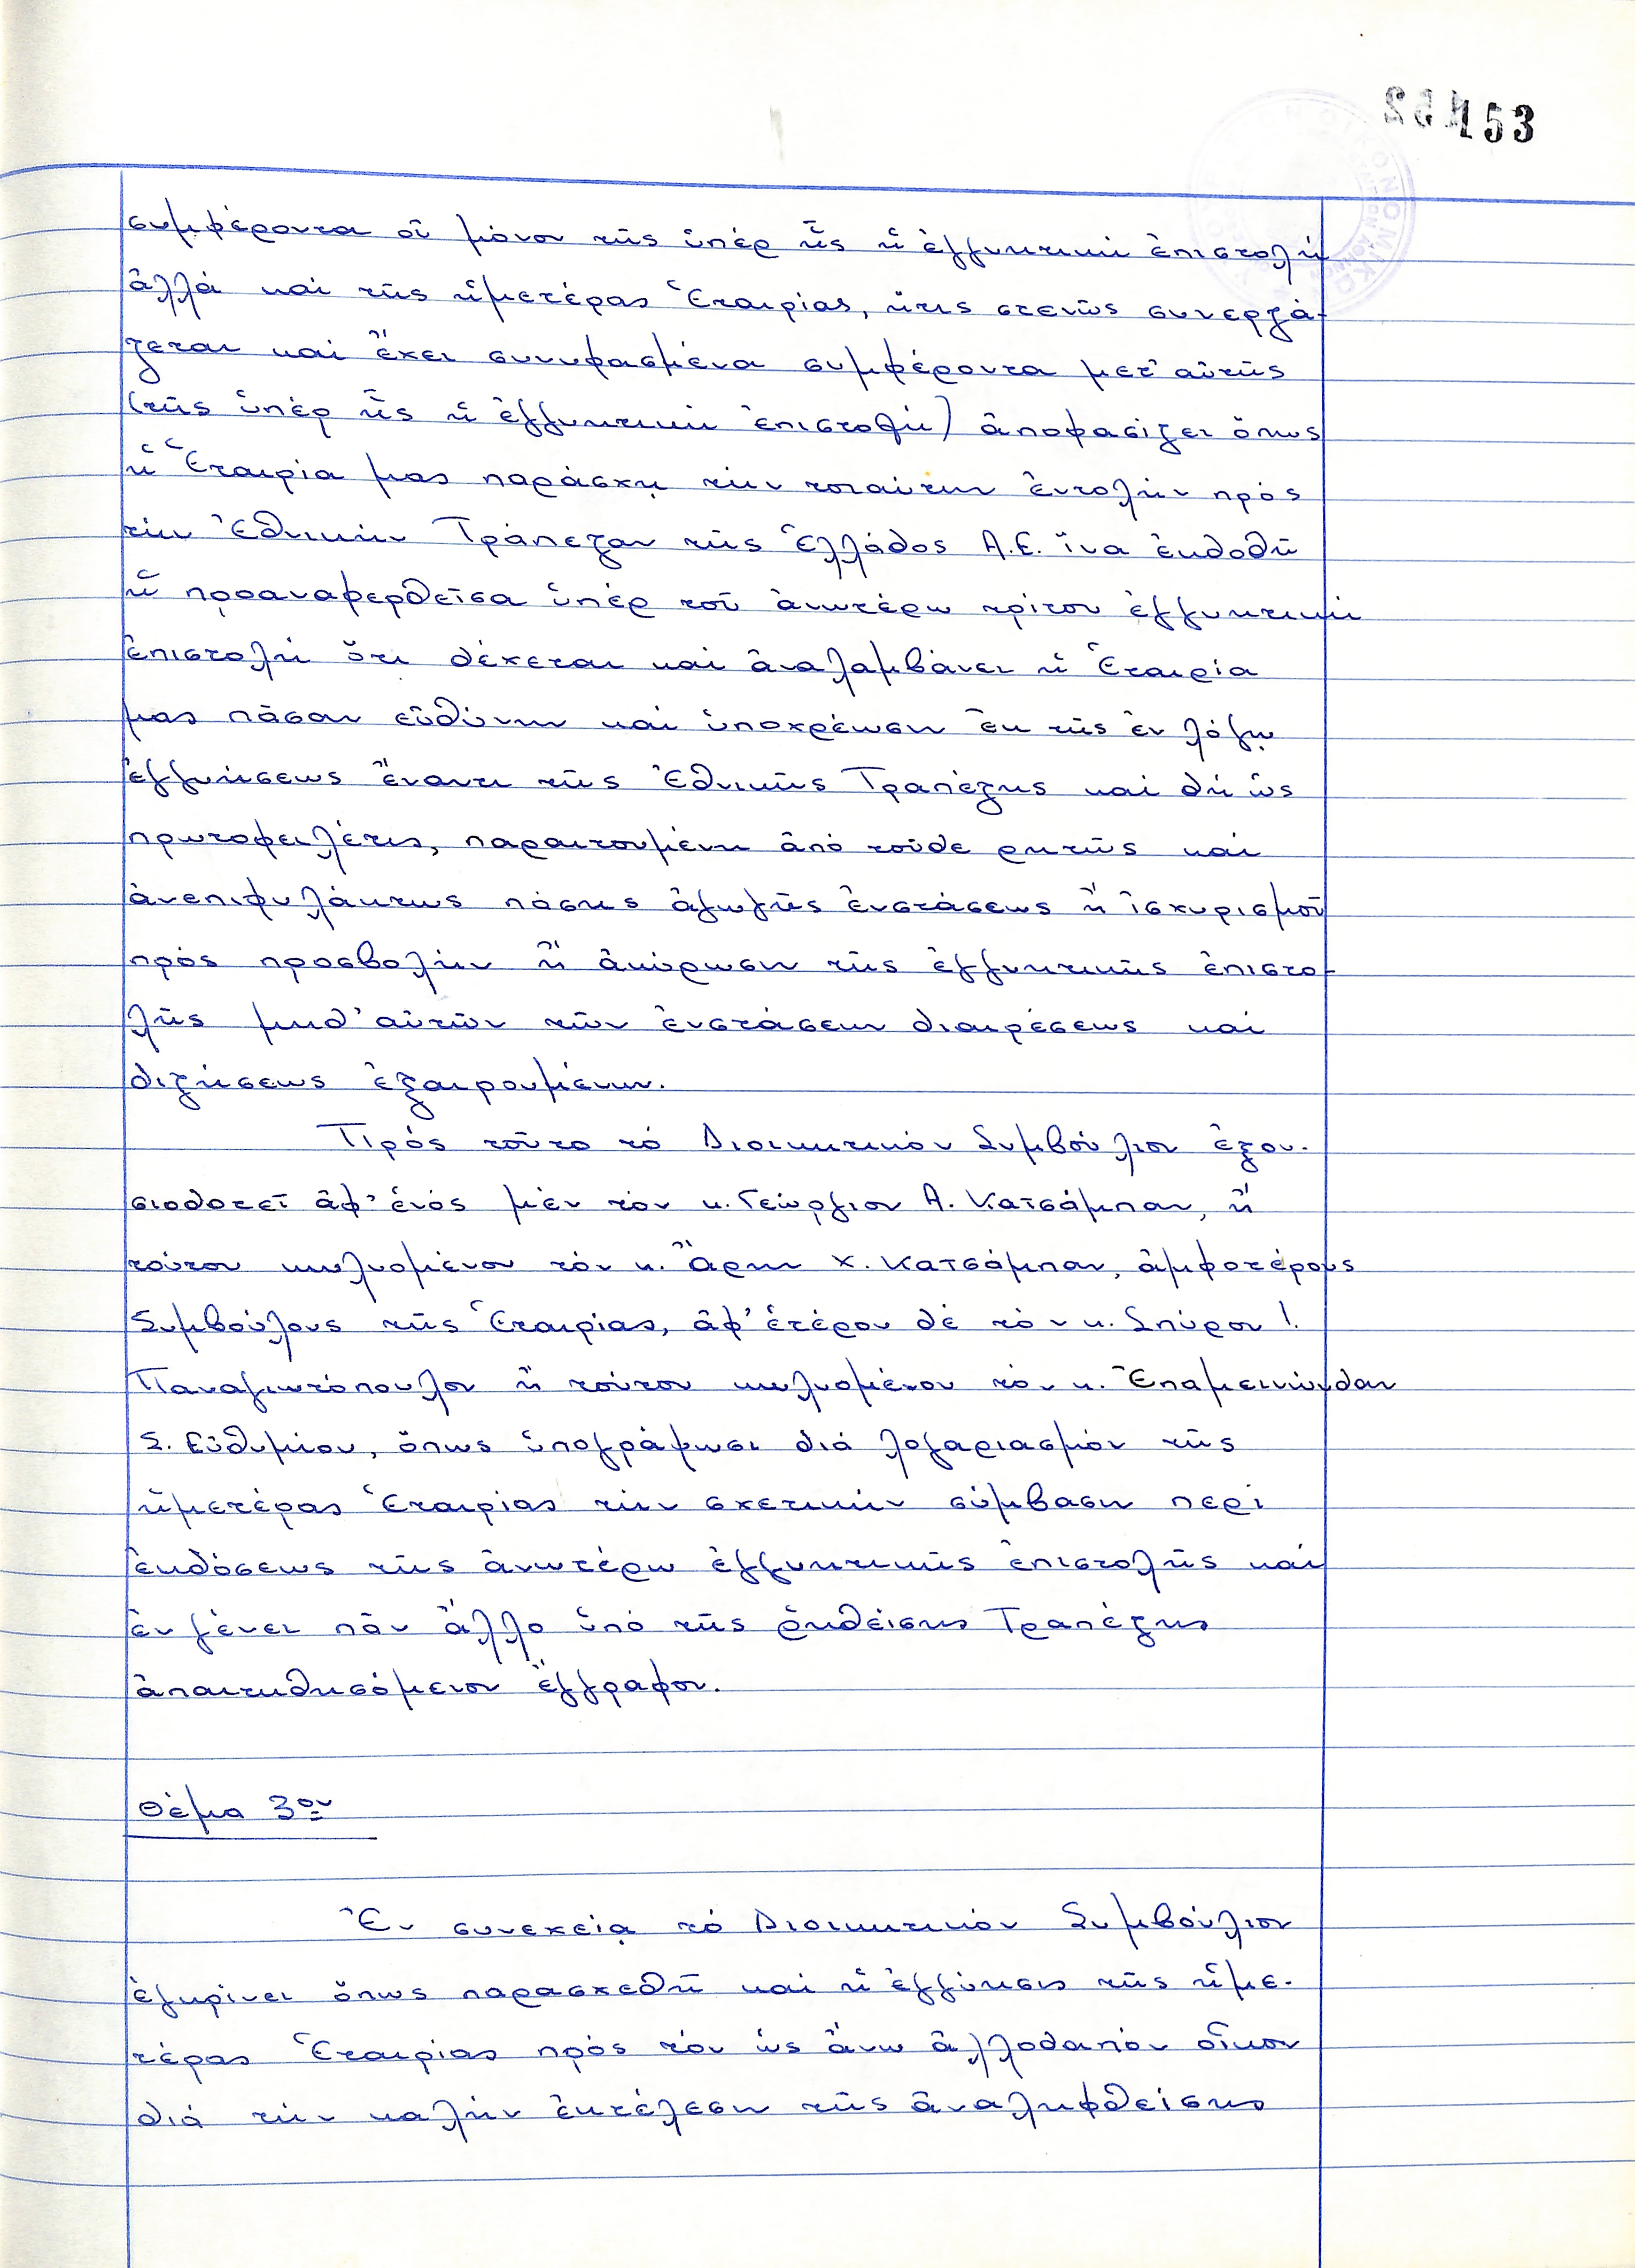 153
συμφέροντα οὐ μόνον τῆς ὑπέρ ἧς ἡ ἐγγυητική ἐπιστολή
ἀλλά καί τῆς ἡμετέρας Ἑταιρίας, ἥτις στενῶς συνεργά-
ζεται καί ἔχει συνυφασμένα συμφέροντα μετ' αὐτῆς
(τῆς ὑπέρ ἧς ἡ ἐγγυητική ἐπιστολή) ἀποφασίζει ὅπως
ἡ Ἑταιρία μας παράσχη τήν τοιαύτην ἐντολήν πρός
τήν Ἐθνικήν Τράπεζαν τῆς Ἑλλάδος Α.Ε. ἵνα ἐκδοθῆ
ἡ προαναφερθεῖσα ὑπέρ τοῦ ἀνωτέρω τρίτου ἐγγυητική
ἐπιστολή ὅτι δέχεται καί ἀναλαμβάνει ἡ Ἑταιρία
μας πᾶσαν εὐθύνην καί ὑποχρέωσιν ἐκ τῆς ἐν λόγῳ
ἐγγυήσεως ἔναντι τῆς Ἐθνικῆς Τραπέζης καί δή ὡς
πρωτοφειλέτις, παραιτουμένη ἀπό τοῦδε ρητῶς καί
ἀνεπιφυλάκτως πάσης ἀγωγῆς ἐνστάσεως ἤ ἰσχυρισμοῦ
πρός προσβολήν ἤ ἀκύρωσιν τῆς ἐγγυητικῆς ἐπιστο-
λῆς μηδ' αὐτῶν τῶν ἐνστάσεων διαιρέσεως καί
διζήσεως ἐξαιρουμένων.
Πρός τοῦτο τό Διοικητικόν Συμβούλιον ἐξου-
σιοδοτεῖ ἀφ' ἑνός μέν τόν κ. Γεώργιον Α. Κατσάμπαν, ἤ
τούτου κωλυομένου τόν κ. Ἄρην Χ. Κατσάμπαν, ἀμφοτέρους
Συμβούλους τῆς Ἑταιρίας, ἀφ' ἑτέρου δέ τόν κ. Σπύρον Ι.
Παναγιωτόπουλον ἤ τούτου κωλυομένου τόν κ. Ἐπαμεινώνδαν
Σ. Εὐθυμίου, ὅπως ὑπογράψωσι διά λογαριασμόν τῆς
ἡμετέρας Ἑταιρίας τήν σχετικήν σύμβασιν περί
ἐκδόσεως τῆς ἀνωτέρω ἐγγυητικῆς ἐπιστολῆς καί
ἐν γένει πᾶν ἄλλο ὑπό τῆς ῥηθείσης Τραπέζης
ἀπαιτηθησόμενον ἔγγραφον.
Θέμα 3ον
Ἐν συνεχείᾳ τό Διοικητικόν Συμβούλιον
ἐγκρίνει ὅπως παρασχεθῆ καί ἡ ἐγγύησις τῆς ἡμε-
τέρας Ἑταιρίας πρός τόν ὡς ἄνω ἀλλοδαπόν οἶκον
διά τήν καλήν ἐκτέλεσιν τῆς ἀναληφθείσης